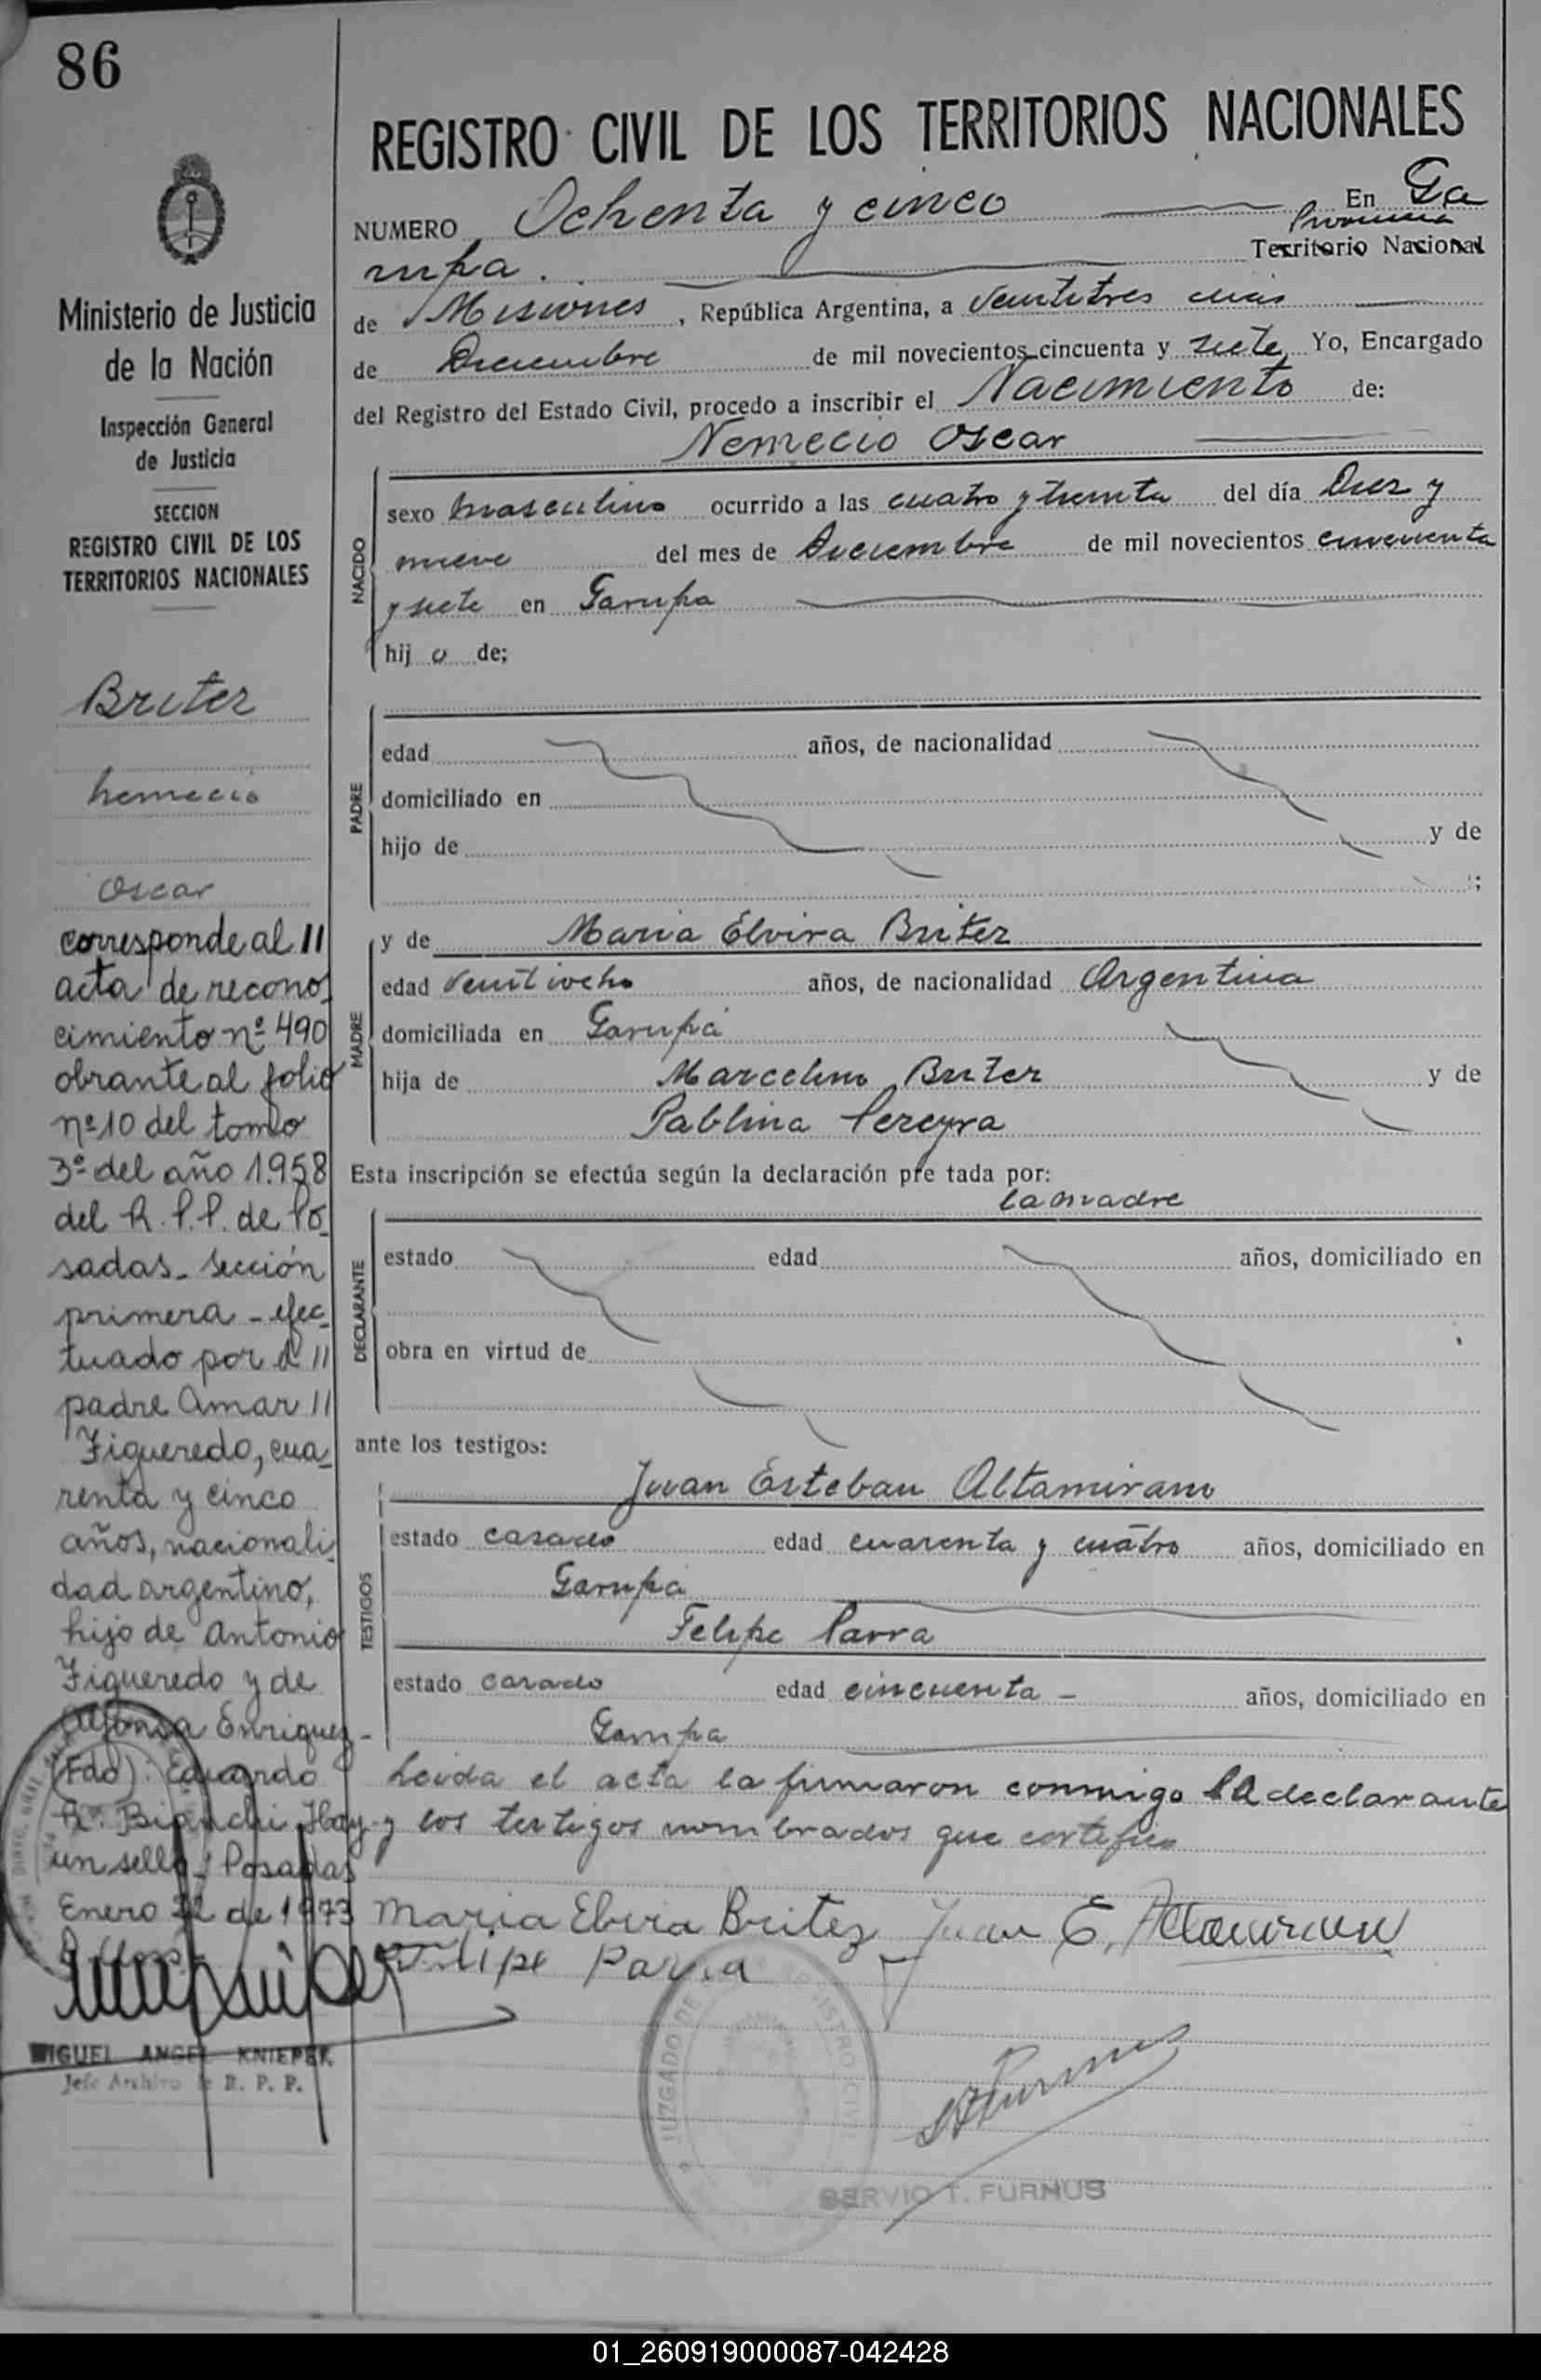 86
Ministerio de Justicia
de la Nación
Inspección General
de Justicia
SECCION
REGISTRO CIVIL DE LOS
TERRITORIOS NACIONALES
Britez
Nemecio
Oscar
corresponde al //
acta de recono_
cimiento nº 490
obrante al folio
nº 10 del tomo
3º del año 1.958
del R.P.P. de Po_
sadas - sección
primera - efec_
tuado por el //
padre Amar //
Figueredo, cua_
renta y cinco
años, nacionali_
dad argentino,
hijo de Antonio
Figueredo y de
Alfonsa Enriquez -
(Fdo): Eduardo
Aº. Bianchi. Hay
un sello; Posadas
Enero 22 de 1973
MIGUEL ANGEL KNIEPER
Jefe Archivo de R. P. P.
REGISTRO CIVIL DE LOS TERRITORIOS NACIONALES
NUMERO Ochenta y cinco En Ga
Provincia
rupa. Territorio Nacional
de Misiones, República Argentina, a veintitres dias
de Diciembre de mil novecientos cincuenta y siete, Yo, Encargado
del Registro del Estado Civil, procedo a inscribir el Nacimiento de:
Nemecio Oscar
NACIDO
sexo masculino ocurrido a las cuatro y treinta del día Diez y
nueve del mes de Diciembre de mil novecientos cincuenta
y siete en Garupa
hij o de;
PADRE
edad años, de nacionalidad
domiciliado en
hijo de y de
;
MADRE
y de Maria Elvira Britez
edad veintiocho años, de nacionalidad Argentina
domiciliada en Garupá
hija de Marcelino Britez y de
Pablina Pereyra
Esta inscripción se efectúa según la declaración pre tada por:
la madre
DECLARANTE
estado edad años, domiciliado en
obra en virtud de
ante los testigos:
TESTIGOS
Juan Esteban Altamirano
estado casado edad cuarenta y cuatro años, domiciliado en
Garupá
Felipe Parra
estado casado edad cincuenta - años, domiciliado en
Garupa
Leida el acta la firmaron conmigo la declarante
y los testigos nombrados que certifico
Maria Elvira Britez Juan E. Altamirano
Felipe Parra
JUZGADO DE REGISTRO CIVIL
SERVIO T. FURNUS
01_260919000087-042428